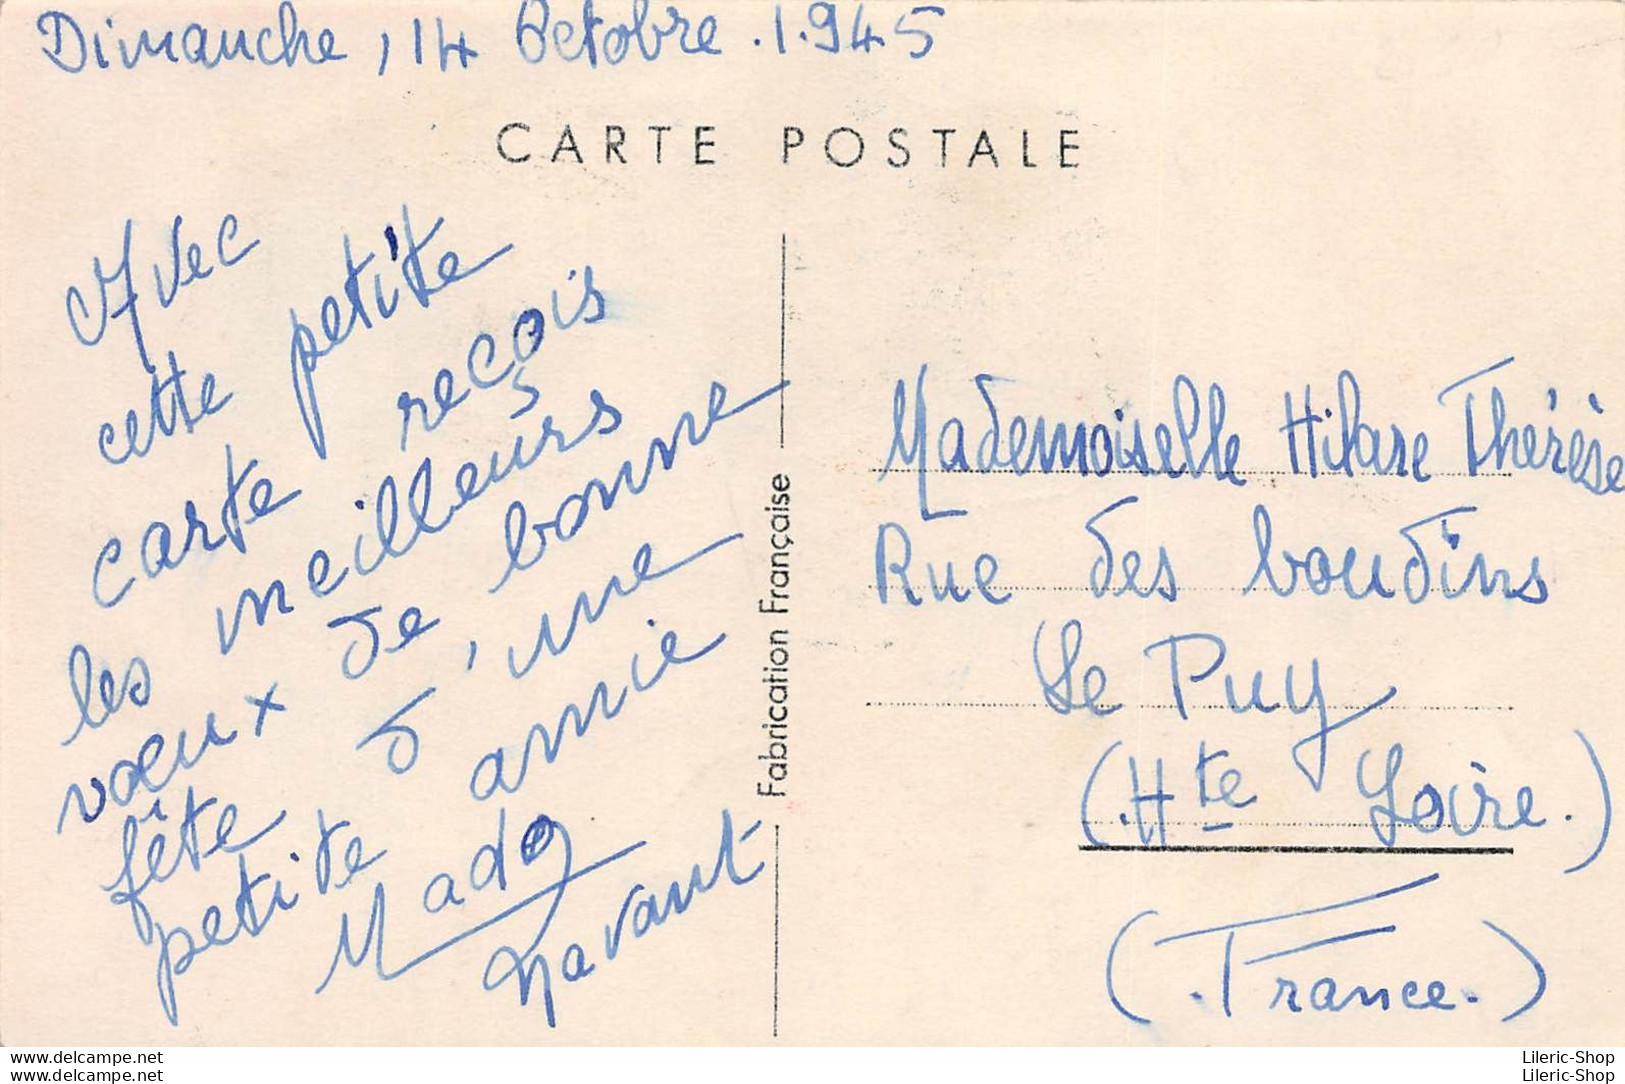 Dimanche, 14 Octobre.1.945
CARTE POSTALE
Avec
cette petite
carte reçois
les meilleurs
voeux de bonne
fête d'une
petite amie
Mado
Navant
Fabrication Française
Mademoiselle Hilare Thérèse
Rue des boudins
Le Puy
(.Hte Loire.)
(.France.)
www.delcampe.net
Lileric-Shop
www.delcampe.net
Lileric-Shop